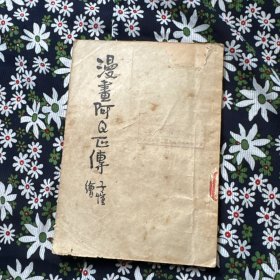 漫畫阿Q正傳
子愷
繪